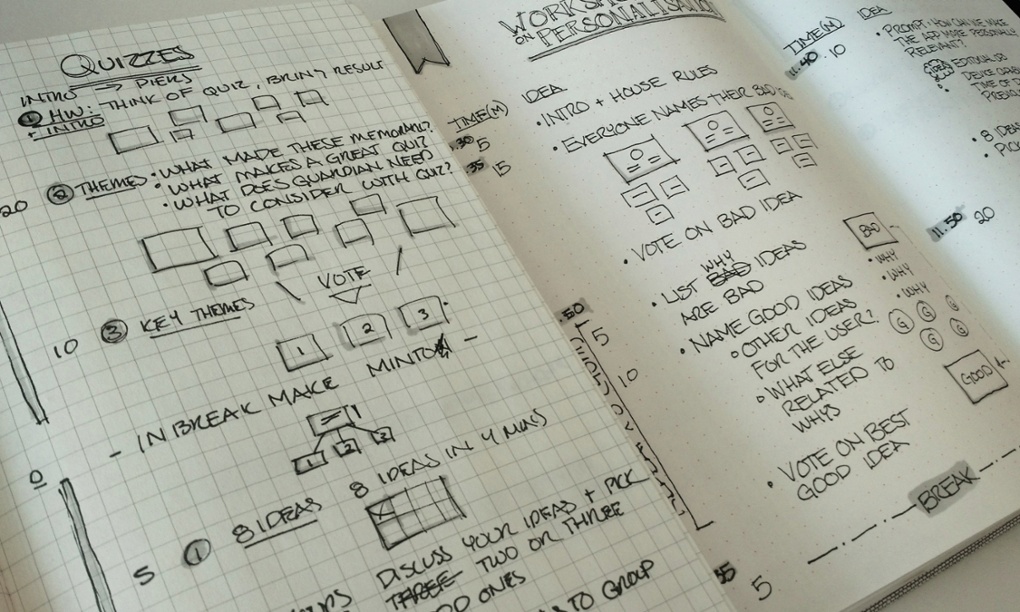 QUIZZES
INTRO → PIERS
① HW: THINK OF QUIZ, BRING RESULT
+ INTRO
20
② THEMES • WHAT MADE THESE MEMORABLE?
• WHAT MAKES A GREAT QUIZ
• WHAT DOES GUARDIAN NEED
TO CONSIDER WITH QUIZ?
VOTE
10
③ KEY THEMES
1 2 3
- IN BREAK MAKE MINTO -
1 2 3
0
5
① 8 IDEAS 8 IDEAS IN 4 MINS
DISCUSS YOUR IDEAS + PICK
THREE TWO OR THREE
ONES
TO GROUP
WORKSHOP
ON PERSONALISATION
TIME(M) IDEA
.30 5 • INTRO + HOUSE RULES
.35 15 • EVERYONE NAMES THEIR BAD
• VOTE ON BAD IDEA
• LIST WHY BAD IDEAS
ARE BAD
.50 5
• NAME GOOD IDEAS
10
• OTHER IDEAS
FOR THE USER?
• WHAT ELSE
RELATED TO
WHYS
• VOTE ON BEST
GOOD IDEA
BAD
• WHY
• WHY
• WHY
G G G G G
GOOD
BREAK
35 5
TIME(M) IDEA
11.40 10 • PROMPT: HOW CAN WE MAKE
THE APP MORE PERSONALLY
RELEVANT?
EDITORIAL
TIME OF
• 8 IDEAS
11.50 20